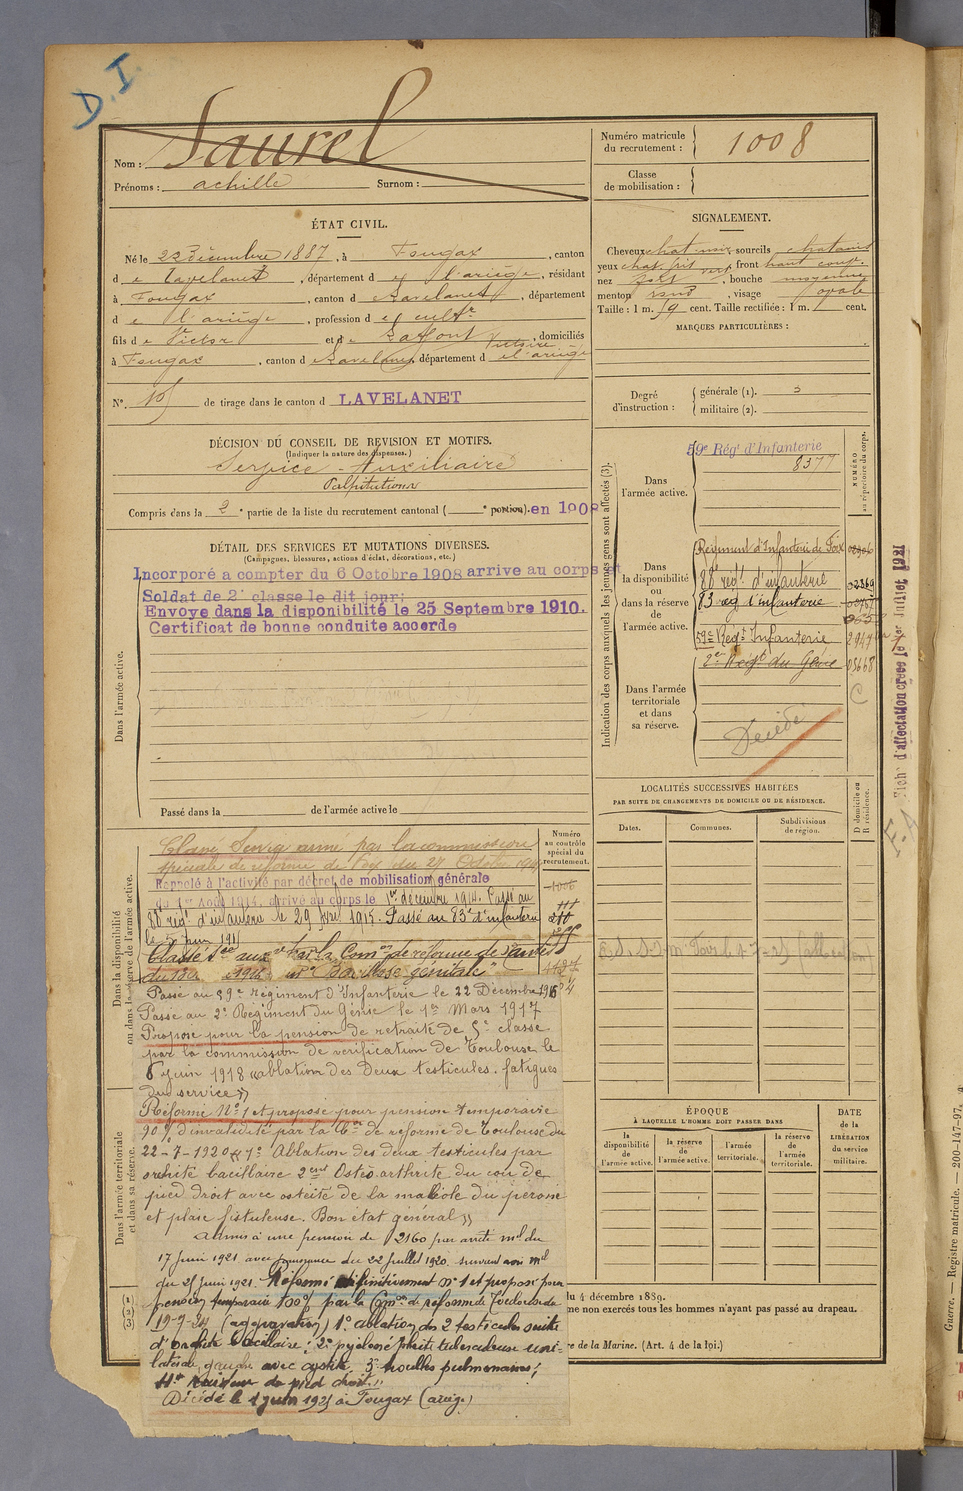 D.I.
Nom : Saurel
Prénoms : achille Surnom :
Numéro matricule
du recrutement : 1008
Classe
de mobilisation :
ÉTAT CIVIL.
Né le 22 décembre 1887, à Fougax, canton
de Lavelanet, département de l'ariège, résidant
à Fougax, canton de Lavelanet, département
de l'ariège, profession de cultr
fils de Victor et de Laffont Victoire, domiciliés
à Fougax, canton de Lavelanet, département de l'ariège
N°. de tirage dans le canton d LAVELANET
SIGNALEMENT.
Cheveux chat-noir sourcils chatains
yeux chat. gris verd, front haut
nez fort, bouche moyenne
menton rond, visage ovale
Taille : 1 m. 59 cent. Taille rectifiée : 1 m. cent.
MARQUES PARTICULIÈRES :
Degré
d'instruction :
générale (1). 3
militaire (2).
DÉCISION DU CONSEIL DE REVISION ET MOTIFS.
(Indiquer la nature des dispenses.)
Service Auxiliaire
Palpitations
Compris dans la 2e partie de la liste du recrutement cantonal ( e portion). en 1908
DÉTAIL DES SERVICES ET MUTATIONS DIVERSES.
(Campagnes, blessures, actions d'éclat, décorations, etc.)
Incorporé a compter du 6 Octobre 1908 arrive au corps et
Soldat de 2e classe le dit jour;
Envoye dans la disponibilité le 25 Septembre 1910.
Certificat de bonne conduite accorde
Dans l'armée active.
Passé dans la de l'armée active le
Indication des corps auxquels les jeunes gens sont affectés (3).
NUMÉRO
au répertoire du corps.
Dans
l'armée active.
59e Régt d'Infanterie
8377
Dans
la disponibilité
ou
dans la réserve
de
l'armée active.
Régiment d'Infanterie de Foix
88e régt d'infanterie 02369
83 reg d'infanterie
59e Regt Infanterie 2947
2e Regt du Génie 03668
Dans l'armée
territoriale
et dans
sa réserve.
Décédé
Fiche d'affectation créée le 1er Juillet 1921
LOCALITÉS SUCCESSIVES HABITÉES
PAR SUITE DE CHANGEMENTS DE DOMICILE OU DE RÉSIDENCE.
Dates.
Communes.
Subdivisions
de région.
D domicile ou
R résidence.
Numéro
au contrôle
spécial du
recrutement.
Dans la disponibilité
ou dans la réserve de l'armée active.
Classé Service armé par la commission
spéciale de réforme de Foix du 24 Octobre 1914
Rappelé à l'activité par décret de mobilisation générale
du 1er Août 1914, arrivé au corps le 1er décembre 1914. Passé au
88e régt d'infanterie le 29 1915. Passé au 83e d'infanterie
le 5 juin 191
Classé Sce auxre par la Comon de réforme de
Bacillose génitale"
Passé au 59e Régiment d'Infanterie le 22 Décembre 1916
Passé au 2e Régiment du Génie le 1er Mars 1917
Proposé pour la pension de retraite de 5e classe
par la commission de vérification de Toulouse le
6 juin 1918 « ablation des Deux testicules. fatigues
du service »
Réformé N°1 et proposé pour pension temporaire
90 % d'invalidité par la Con de réforme de Toulouse du
22-7-1920 « 1° Ablation des deux testicules par
orchite bacillaire 2ent Ostéo arthrite du cou de
pied droit avec ostéite de la maléole du péroné
et plaie fistuleuse. Bon état général »
admis à une pension de 2160 par arrêté mel du
17 Juin 1921 avec jouissance du 22 Juillet 1920 suivant avis mel
du 25 juin 1921. Réformé définitivement n° 1 et proposé pour
pension temporaire 100% par la Comon de réforme de Toulouse du
19-9-24 (aggravation) 1° ablation des 2 testicules suite
d'orchite bacillaire; 2° pyélonéphrite tuberculeuse uni-
latérale gauche avec cystite 3° pulmonaires;
4° Raideur de pied droit"
Décédé le 1 juin 1925 à Fougax (ariège)
Dans l'armée territoriale
et dans sa réserve.
ÉPOQUE
À LAQUELLE L'HOMME DOIT PASSER DANS
la
disponibilité
de
l'armée active.
la réserve
de
l'armée active.
l'armée
territoriale.
la réserve
de
l'armée
territoriale.
DATE
de la
LIBÉRATION
du service
militaire.
(1)
(2)
(3)
du 4 décembre 1889.
me non exercés tous les hommes n'ayant pas passé au drapeau.
re de la Marine. (Art. 4 de la loi.)
Guerre. — Registre matricule. — 200-147-97.